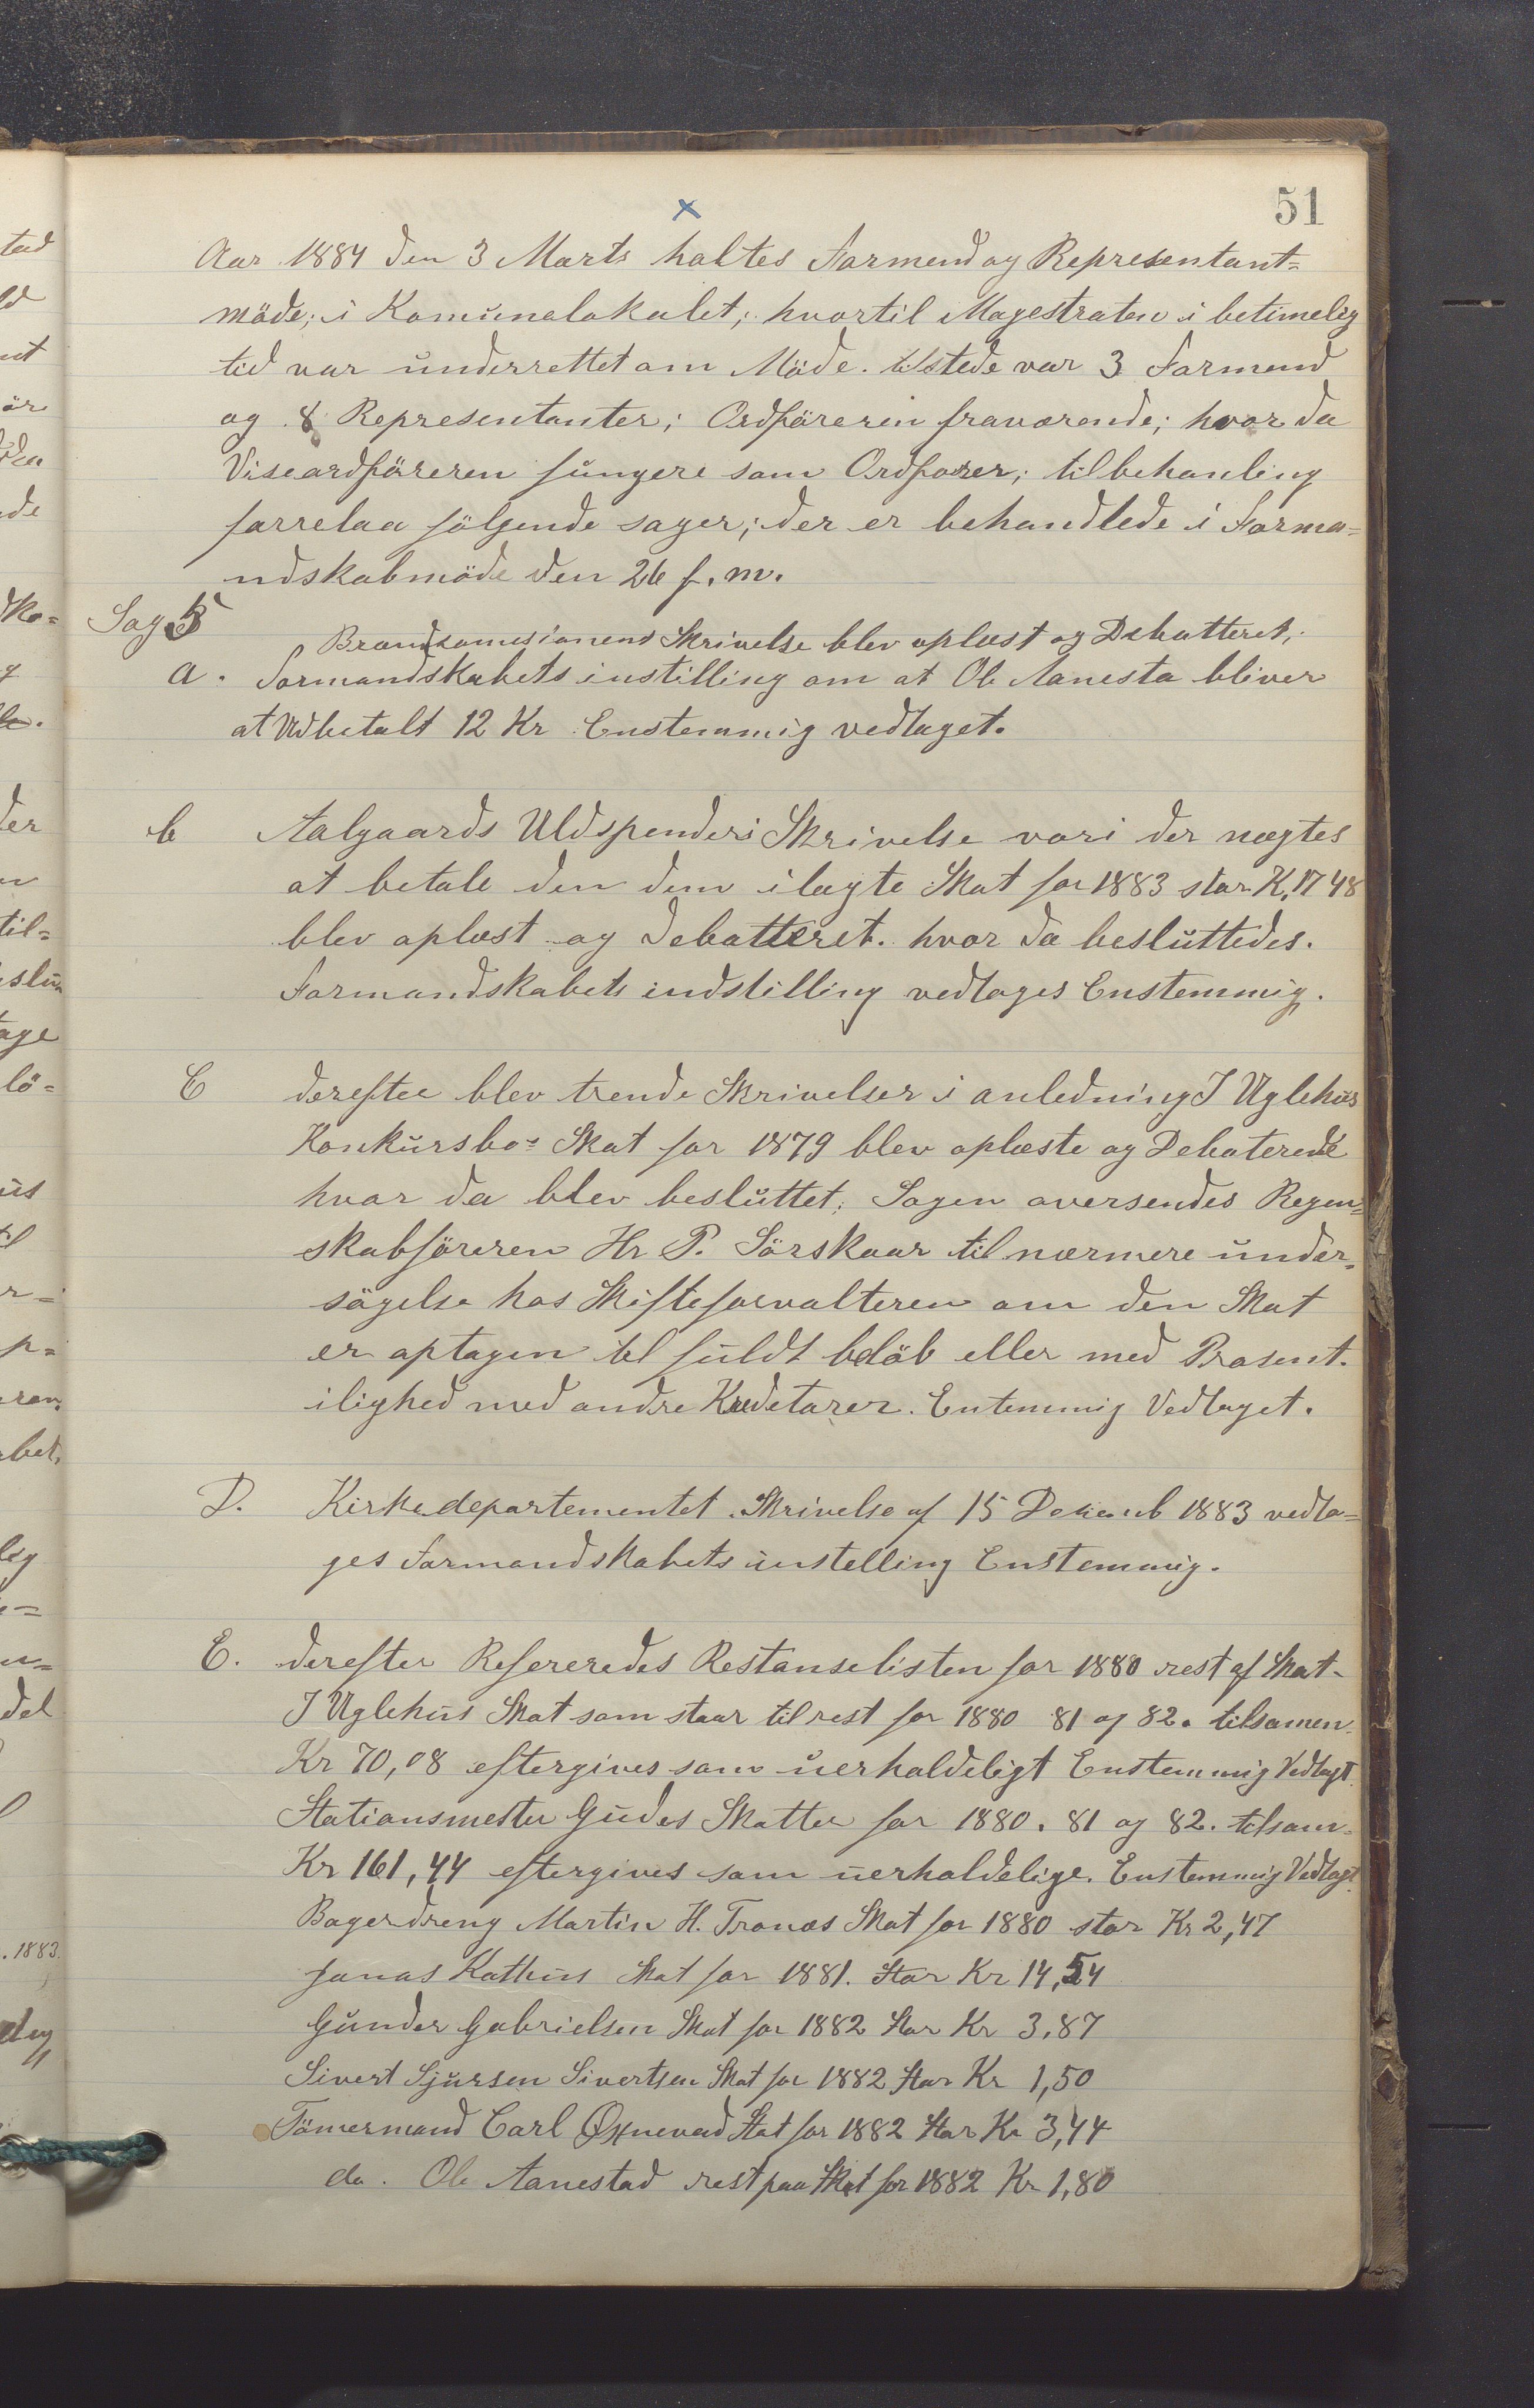 51
Aar 1884 den 3 Marts holtes Formend og Representant=
möde; i Komunelokalet; hvortil Magestraten i betimelig
tid var underrettet om Möde. tilstede var 3 Formend
og 8 Representanter; Ordföreren fraværende; hvor da
Viseordföreren fungere som Ordforer; til behanling
forrelaa fölgende sager; der er behandlede i Forma=
ndskabmöde den 26 f. m.
Sag 5
Brandkomesionens Skrivelse blev oplæst og Debatteret;
a. Formandskabets instilling om at Ole Aanesta bliver
at Udbetalt 12 Kr Enstemmig vedtaget.
b Aalgaards Uldspenderi Skrivelse vori der nægtes
at betale den dem ilagte Skat for 1883 stor K. 17 48
blev oplæst og debatteret. hvor da besluttedes.
Formandskabets indstilling vedtages Enstemmig.
C derefter blev trende Skrivelser i anledning J Uglehus
Konkursbo= Skat for 1879 blev oplæste og Debaterede
hvor da blev besluttet; Sagen oversendes Regen=
skabföreren Hr P. Sörskaar til nærmere under=
sögelse hos Skifteforvalteren om den Skat
er optagen til fuldt belöb eller med Prosent.
ilighed med andre Kredetorer. Entemmig Vedtaget.
D. Kirkedepartementet Skrivelse af 15 Desemb 1883 vedta=
ges Formandskabets instelling Enstemmig.
E. derefter Refereredes Restanselisten for 1880 rest af Skat.
J Uglehus Skat som staar til rest for 1880 81 og 82. tilsamen.
Kr 70,08 eftergives som uerholdeligt Enstemmig Vedtagt.
Stationsmester Gudes Skatter for 1880. 81 og 82. tilsam=
Kr 161,44 eftergives som uerholdelige. Enstemmig Vedtagt.
Bagerdreng Martin H. Tronæs Skat for 1880 stor Kr 2,47
Jonas Kathus Skat for 1881. Stor Kr 14,54
Gunder Gabrielsen Skat for 1882 Stor Kr 3,87
Sivert Sjursen Sivertsen Skat for 1882 Stor Kr 1,50
Tömermand Carl Øxnevad Skat for 1882 Stor Kr 3,44
do. Ole Aanestad rest paa Skat for 1882 Kr 1,80